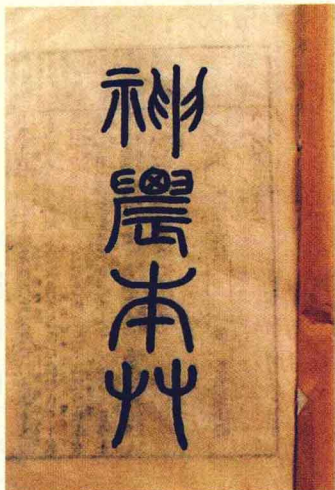 神農本艸